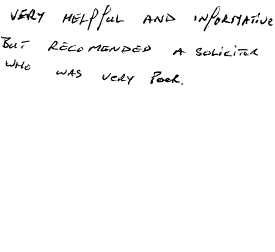 VERY HELPFUL AND INFORMATIVE
BUT RECOMENDED A SOLICITOR
WHO WAS VERY POOR.